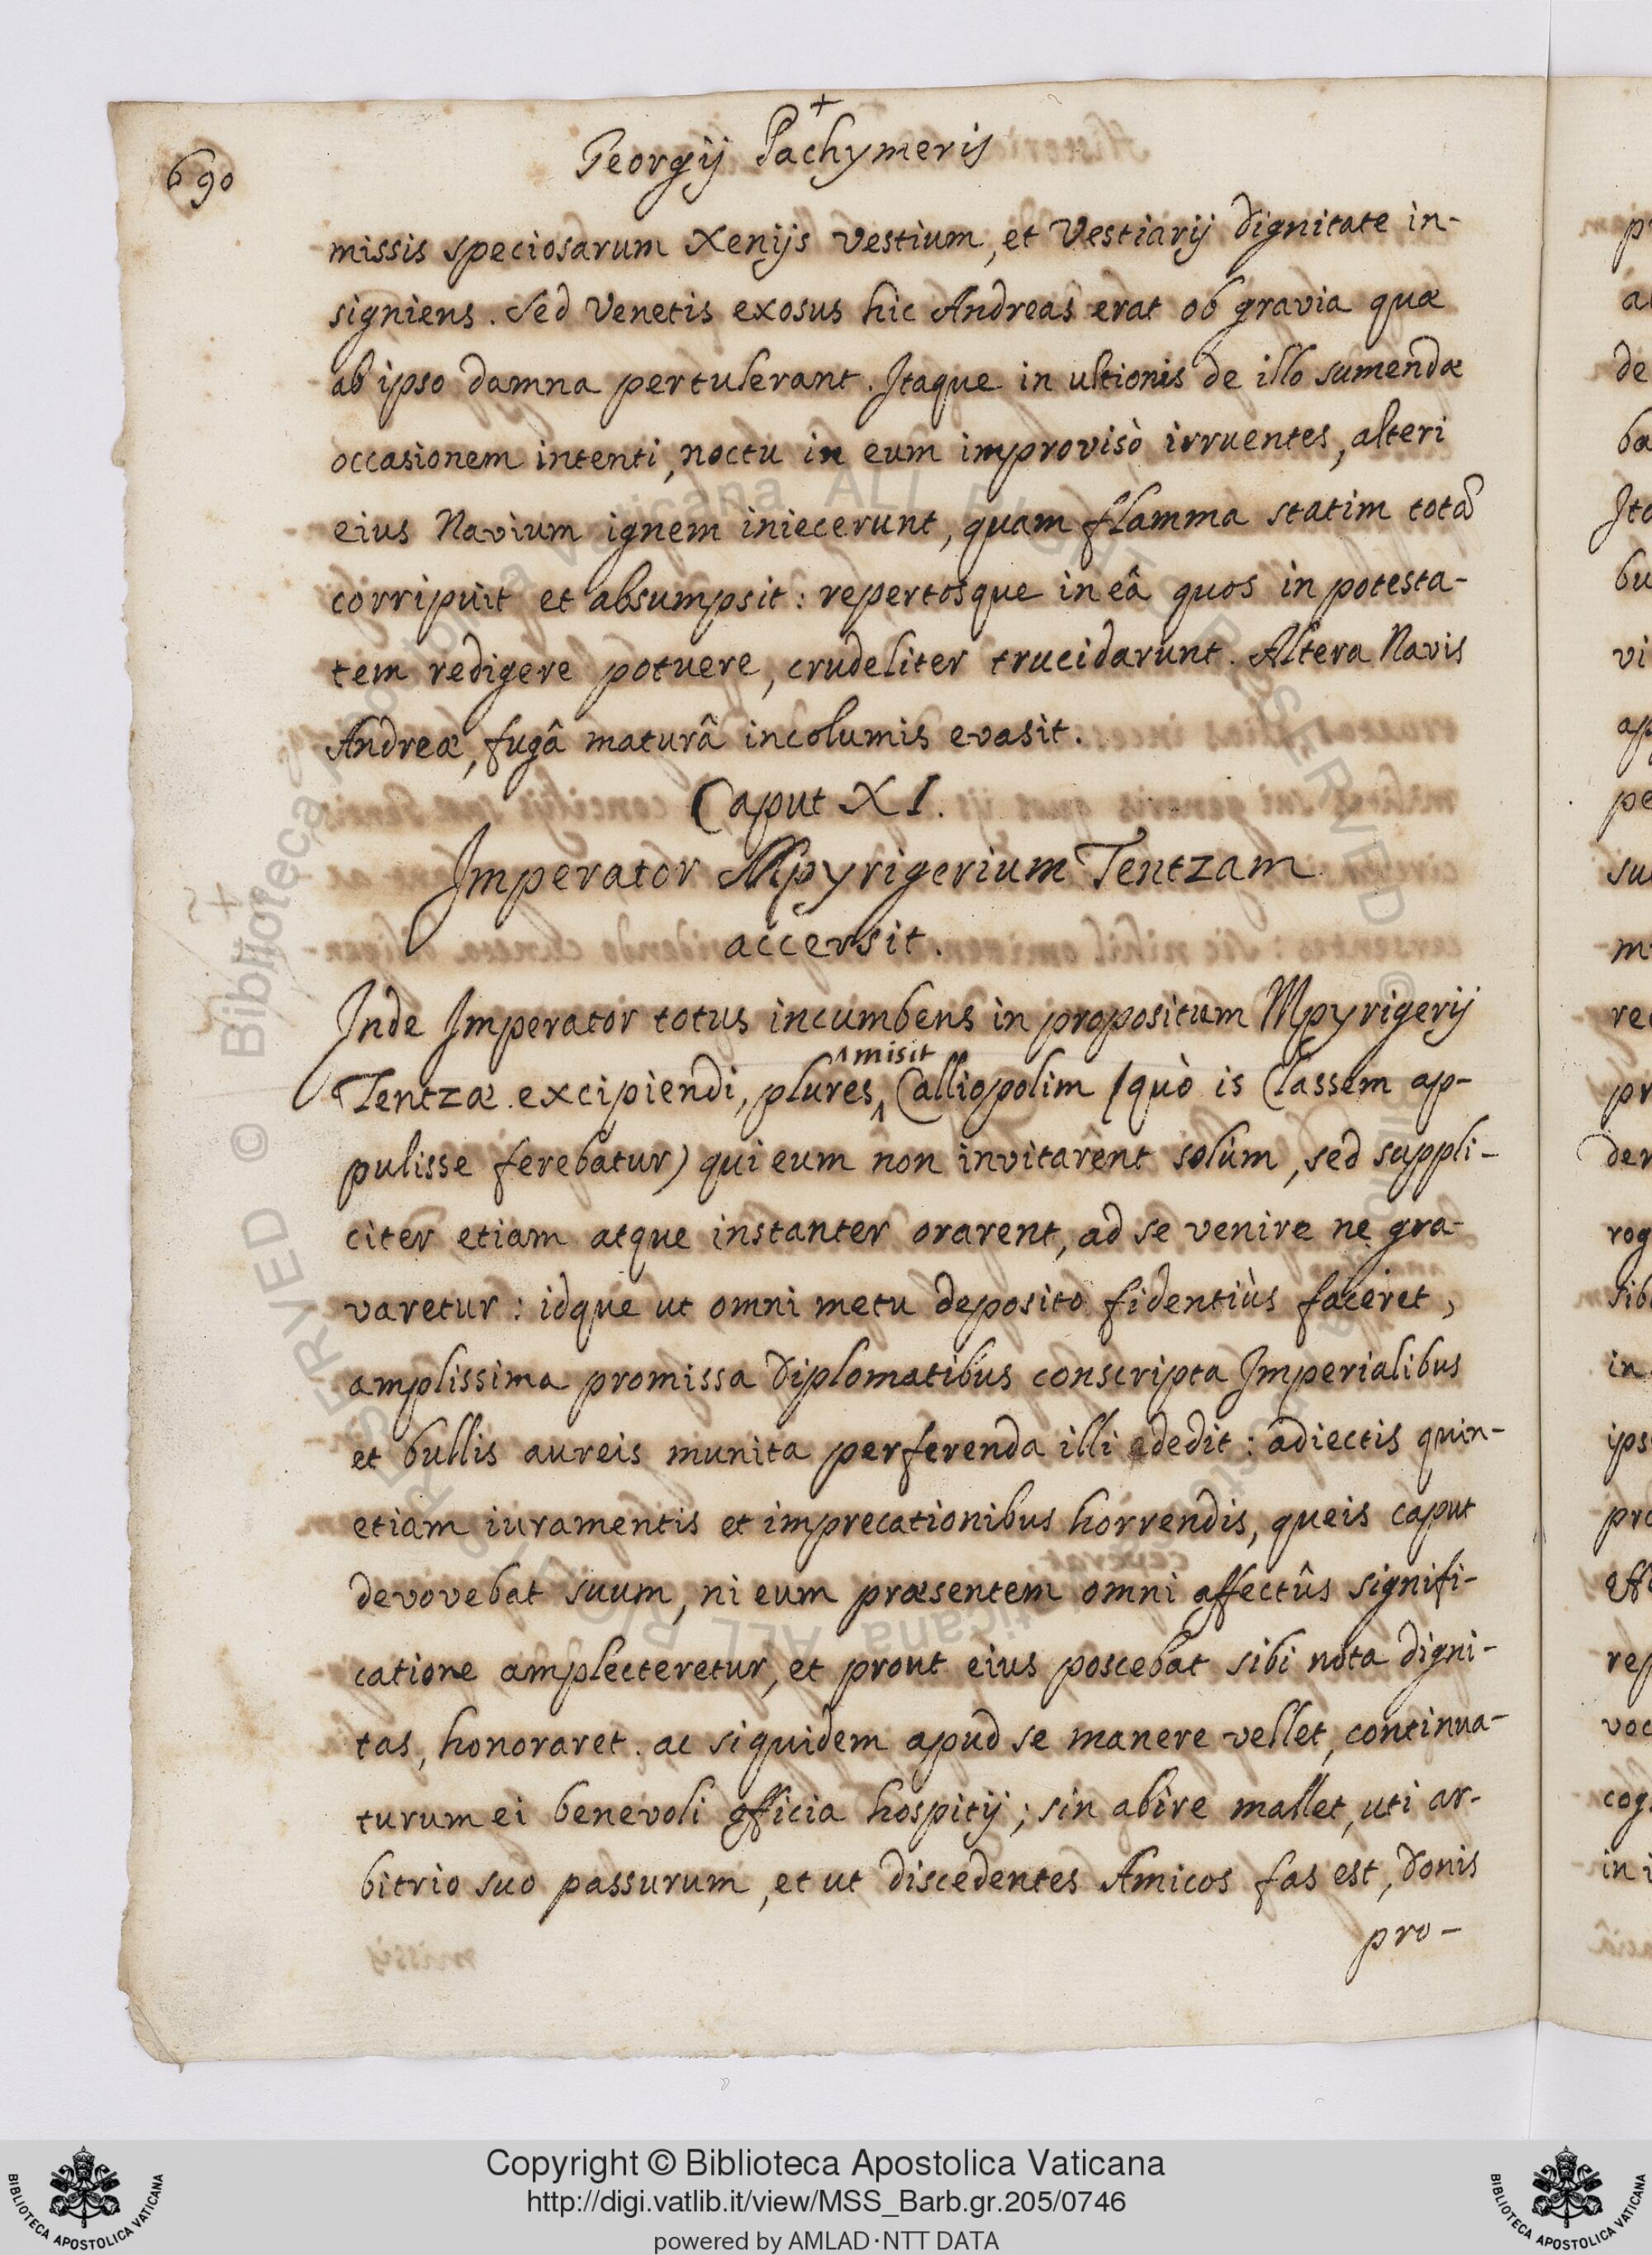 690
Georgij Pachymeris
missis speciosarum Xenijs vestium, et Vestiarij dignitate in-
signiens. Sed Venetis exosus hic Andreas erat ob gravia quæ
ab ipso damna pertulerant. Itaque in ultionis de illo sumendæ
occasionem intenti, noctu in eum improvisò irruentes, alteri
eius Navium ignem iniecerunt, quam flamma statim totã
corripuit et absumpsit: repertosque in eâ quos in potesta-
tem redigere potuere, crudeliter trucidarunt. Altera Navis
Andreæ, fugâ maturâ incolumis evasit.
Caput XI.
Imperator Mpyrigerium Tentzam
accersit.
Inde Imperator totus incumbens in propositum Mpyrigerij
misit
Tentzæ excipiendi, plures, Calliopolim (quò is Classem ap-
pulisse ferebatur) qui eum non invitarent solùm, sed suppli-
citer etiam atque instanter orarent, ad se venire ne gra-
varetur: idque ut omni metu deposito fidentiùs faceret,
amplissima promissa Diplomatibus conscripta Imperialibus
et bullis aureis munita perferenda illi dedit: adiectis quin-
etiam iuramentis et imprecationibus horrendis, queis caput
devovebat suum, ni eum præsentem omni affectûs signifi-
catione amplecteretur, et prout eius poscebat sibi nota digni-
tas, honoraret. ac siquidem apud se manere vellet, continua-
turum ei benevoli officia hospitij; sin abire mallet, uti ar-
bitrio suo passurum, et ut discedentes Amicos fas est, donis
pro-
Copyright © Biblioteca Apostolica Vaticana
http://digi.vatlib.it/view/MSS_Barb.gr.205/0746
powered by AMLAD·NTT DATA
BIBLIOTECA APOSTOLICA VATICANA
BIBLIOTECA APOSTOLICA VATICANA